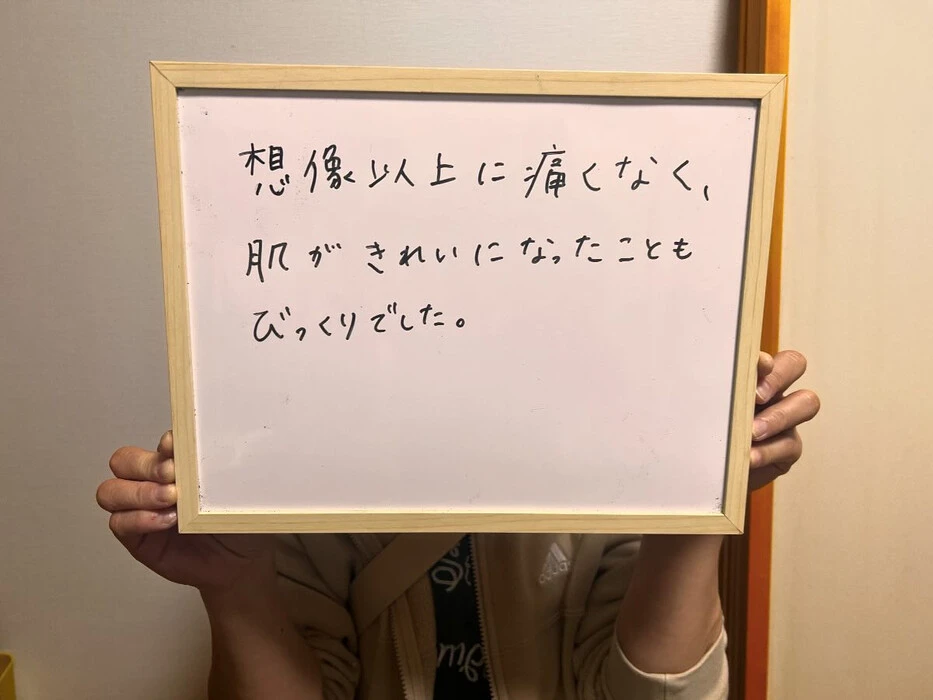 想像以上に痛くなく、
肌がきれいになったことも
びっくりでした。
adidas